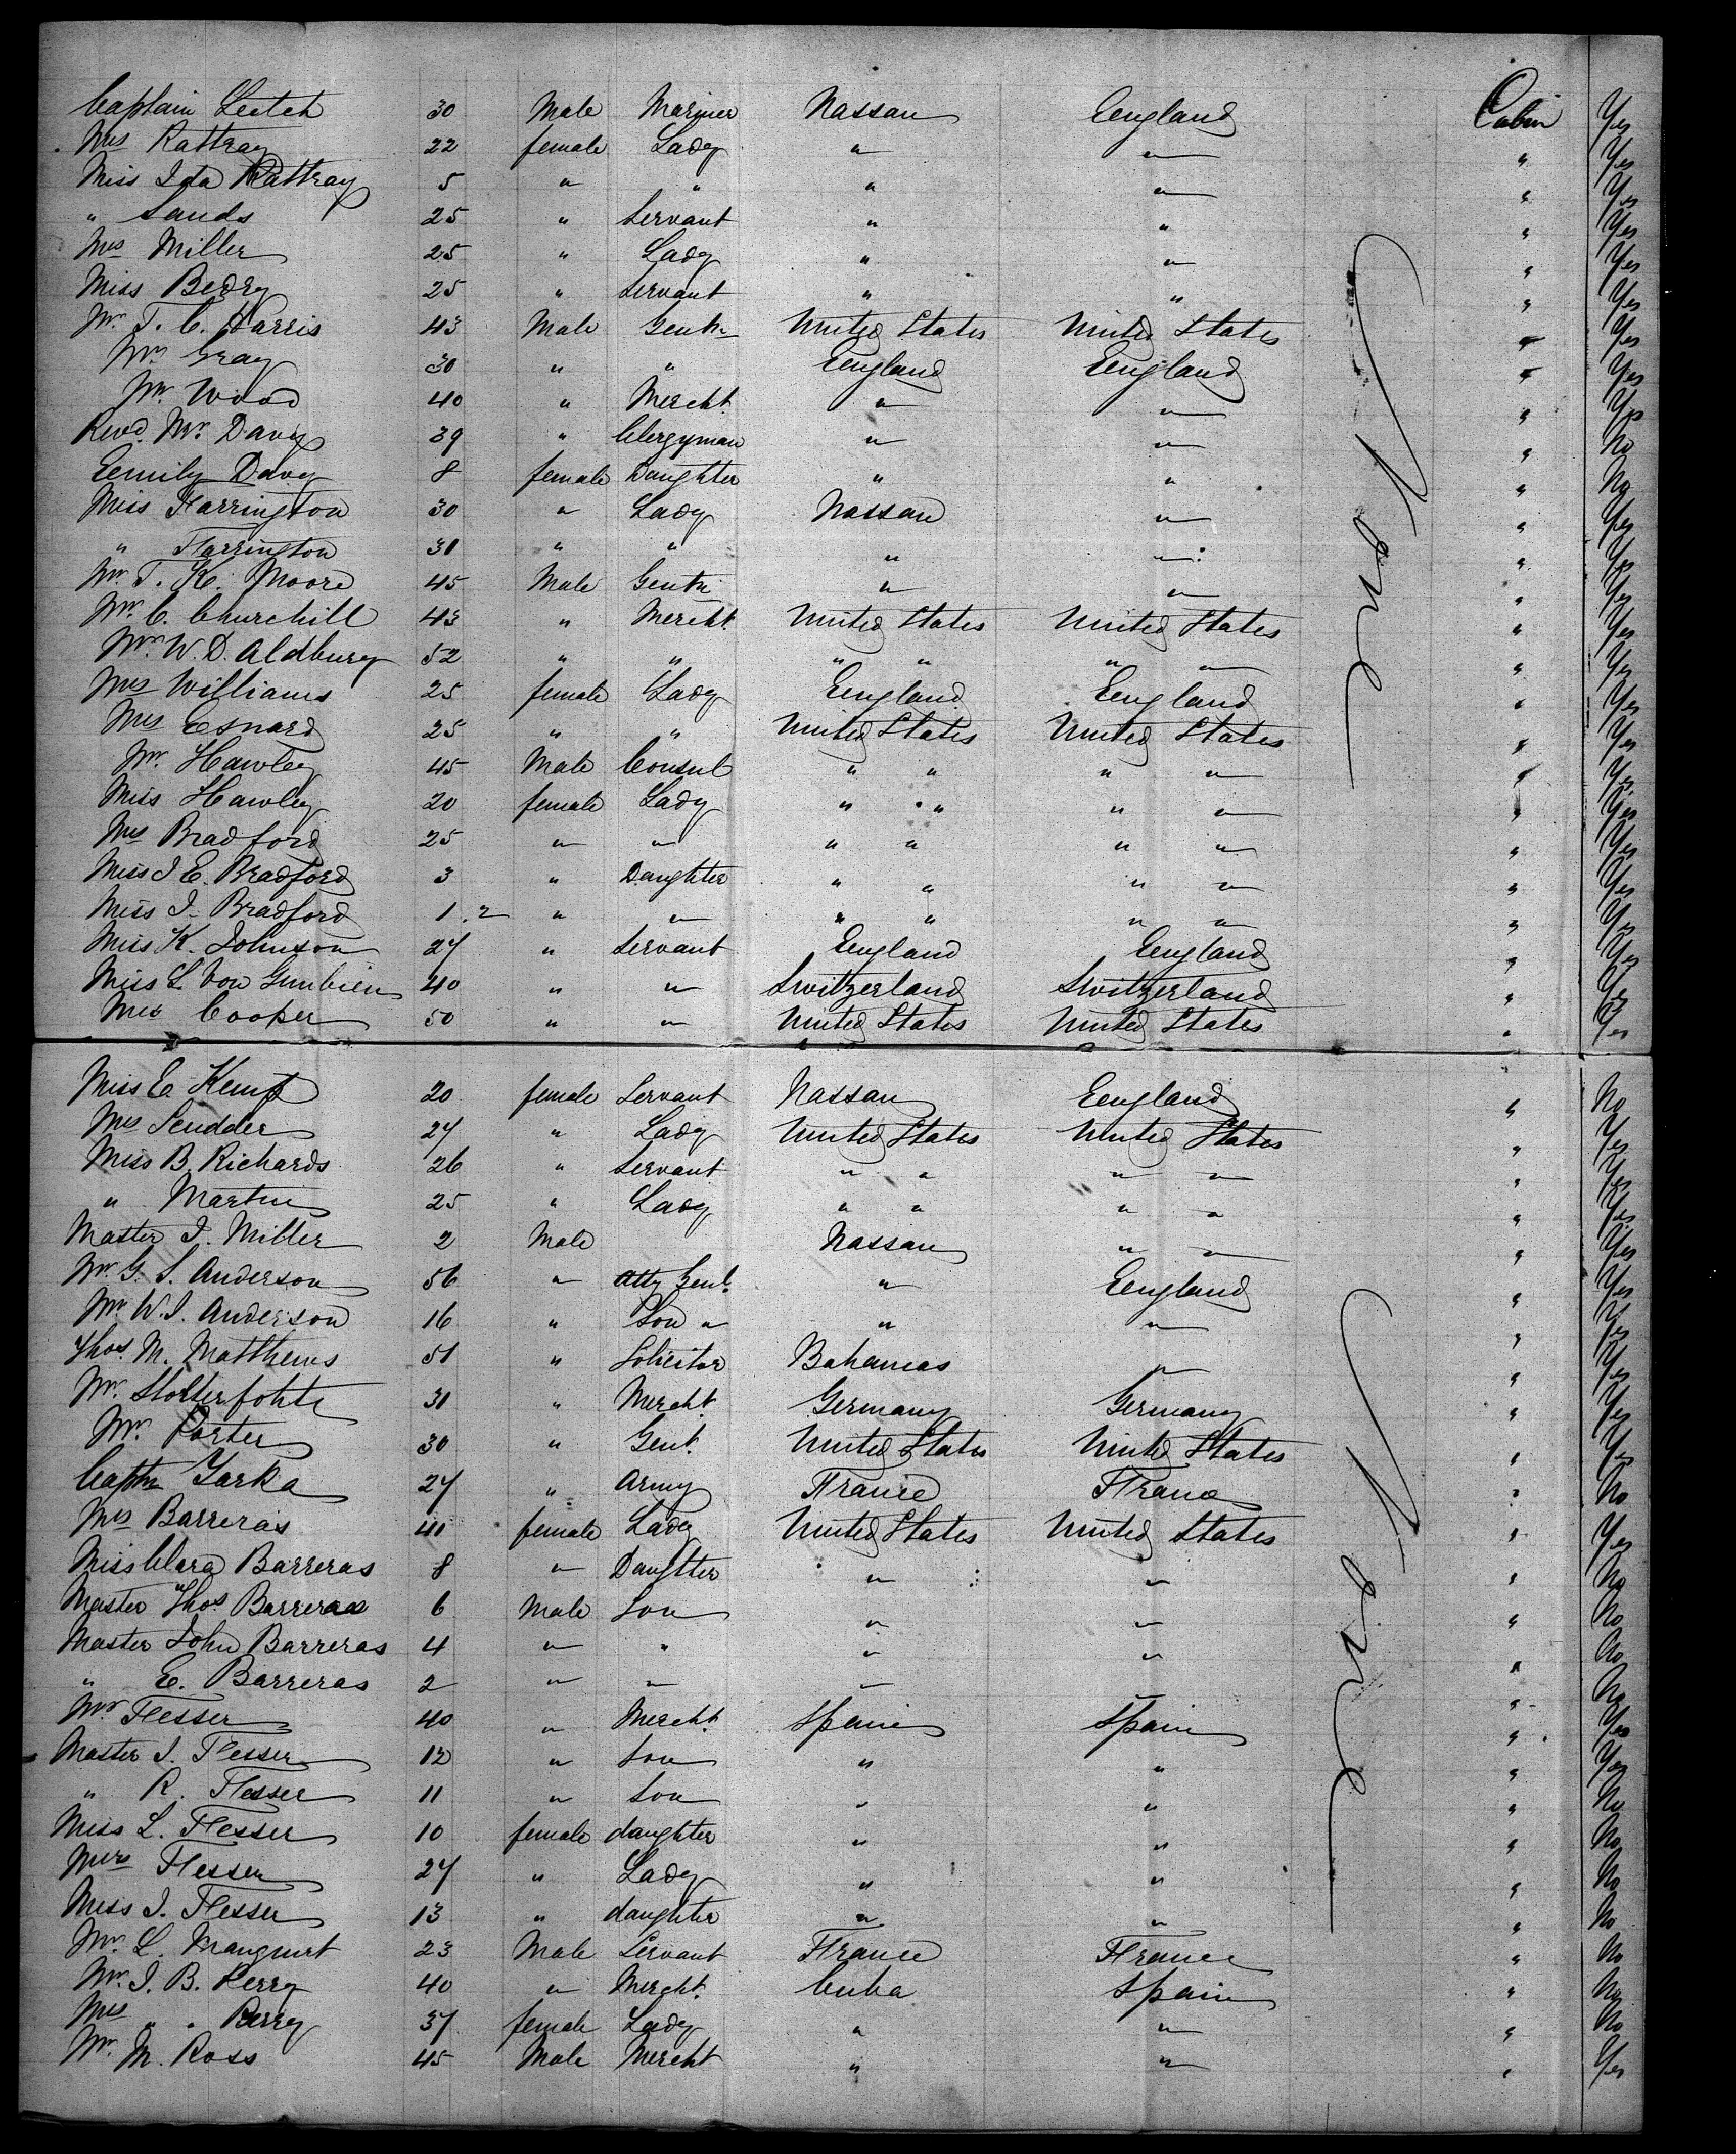 Captain Leitch 30 Male Mariner Nassau England Cabin Yes
Mrs Rattray 22 female Lady " " " Yes
Miss Ida Rattray 5 " " " " " Yes
" Sands 25 " Servant " " " Yes
Mrs Miller 25 " Lady " " " Yes
Miss Bedry 25 " Servant " " " Yes
Mr. T. C. Harris 43 Male Gentn United States United States " Yes
Mr. Gray 30 " " England England " Yes
Mr. Wood 40 " Mercht. " " " Yes
Revd. Mr. Davy 39 " Clergyman " " " No
Eemily Davy 8 female Daughter " " " No
Miss Farrington 30 " Lady Nassau " " Yes
" Farrington 31 " " " " " Yes
Mr. T. K. Moore 45 Male Gentn " " " Yes
Mr. C. Churchill 43 " Mercht. United States United States " Yes
Mr. W. D. Aldbury 52 " " " " " " " Yes
Mrs Williams 25 female Lady England England " Yes
Mrs Esnard 25 " " United States United States " Yes
Mr. Hawley 45 Male Consul " " " " " Yes
Miss Hawley 20 female Lady " " " " " Yes
Mrs Bradford 25 " " " " " " " Yes
Miss I E. Bradford 3 " Daughter " " " " " Yes
Miss I. Bradford 1.2 " " " " " " " Yes
Miss K. Johnson 27 " Servant England England " Yes
Miss L. Von 40 " " Switzerland Switzerland " Yes
Mrs Cooper 50 " " United States United States " Yes
None
Miss E Kemp 20 female Servant Nassau England " No
Mrs Scudder 27 " Lady United States United States " Yes
Miss B. Richards 26 " Servant " " " " " Yes
" Martin 25 " Lady " " " " " Yes
Master I. Miller 2 Male Nassau " " " Yes
Mr. G. S. Anderson 56 " Atty Genl. " England " Yes
Mr. W. I. Anderson 16 " Son " " " " Yes
Thos. M. Matthews 51 " Solicitor Bahamas " " Yes
Mr. Stolterfohts 31 " Mercht. Germany Germany " Yes
Mr. Porter 30 " Gent. United States United States " Yes
Captn 27 " Army France France " No
Mrs Barreras 41 female Lady United States United States " Yes
Miss Clara Barreras 8 " Daughter " " " No
Master Thos. Barreras 6 Male Son " " " No
Master John Barreras 4 " " " " " No
" E. Barreras 2 " " " " " No
Mr. Flesser 40 " Mercht. Spain Spain " Yes
Master I. Flesser 12 " Son " " " Yes
" R. Flesser 11 " Son " " " No
Miss L. Flesser 10 female daughter " " " No
Mrs Flesser 27 " Lady " " " No
Miss I. Flesser 13 " daughter " " " No
Mr. L. 23 Male Servant France France " No
Mr. I. B. Perry 40 " Mercht. Cuba Spain " No
Mrs " " Perry 37 female Lady " " " No
Mr. M. Ross 45 Male Mercht " " " Yes
None